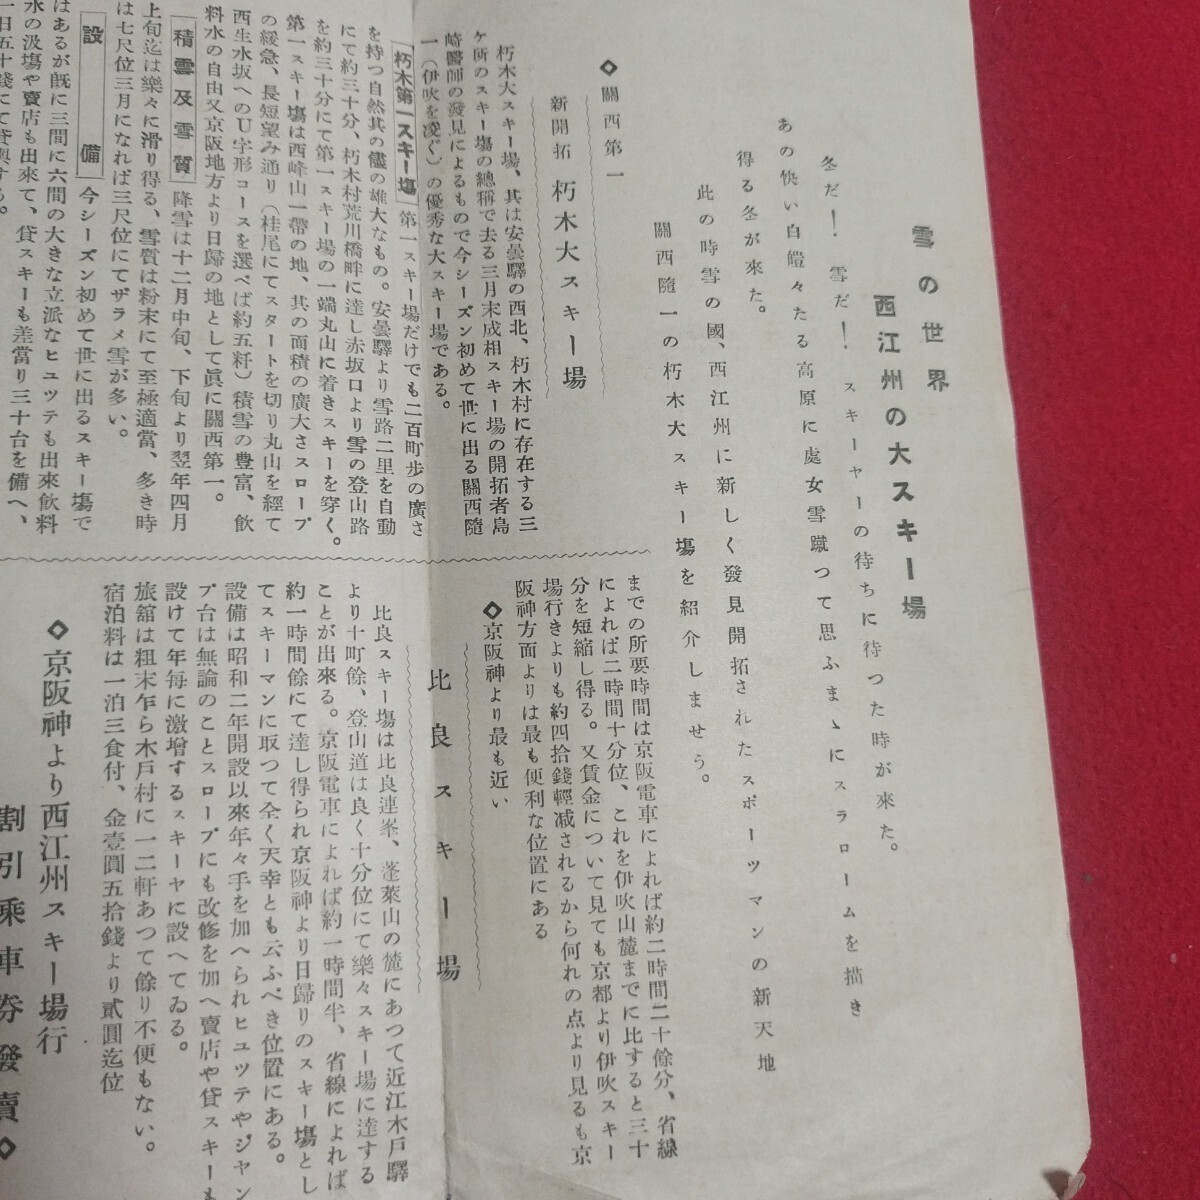 雪の世界
西江州の大スキー場
冬だ！雪だ！スキーヤーの待ちに待つた時が來た。
あの快い白皚々たる高原に處女雪蹴つて思ふまゝにスラロームを描き
得る冬が來た。
此の時雪の國、西江州に新しく發見開拓されたスポーツマンの新天地
關西隨一の朽木大スキー塲を紹介しませう。
◇關西第一
新開拓 朽木大スキー場
朽木大スキー場、其は安曇驛の西北、朽木村に存在する三
ケ所のスキー塲の總稱で去る三月末成相スキー場の開拓者島
崎醫師の發見によるもので今シーズン初めて世に出る關西隨
一（伊吹を凌ぐ）の優秀な大スキー場である。
朽木第一スキー塲 第一スキー場だけでも二百町歩の廣さ
を持つ自然其の儘の雄大なもの。安曇驛より雪路二里を自動
にて約三十分、朽木村荒川橋畔に達し赤坂口より雪の登山路
を約三十分にて第一スキー場の一端丸山に着きスキーを穿く。
第一スキー塲は西峰山一帶の地、其の面積の廣大さスロープ
の緩急、長短望み通り（桂尾にてスタートを切り丸山を經て
西生水坂へのU字形コースを選べば約五粁）積雪の豊富、飲
料水の自由又京阪地方より日歸の地として眞に關西第一。
積雪及雪質 降雪は十二月中旬、下旬より翌年四月
上旬迄は樂々に滑り得る、雪質は粉末にて至極適當、多き時
は七尺位三月になれば三尺位にてザラメ雪が多い。
設備 今シーズン初めて世に出るスキー塲で
はあるが既に三間に六間の大きな立派なヒュッテも出來飲料
水の汲塲や賣店も出來て、貸スキーも差當り三十台を備へ、
一日五十錢にて貸與する。
までの所要時間は京阪電車によれば約二時間二十餘分、省線
によれば二時間十分位、これを伊吹山麓までに比すると三十
分を短縮し得る。又賃金について見ても京都より伊吹スキー
場行きよりも約四拾錢輕减されるから何れの点より見るも京
阪神方面よりは最も便利な位置にある
◇京阪神より最も近い
比良スキー場
比良スキー塲は比良連峯、蓬萊山の麓にあつて近江木戸驛
より十町餘、登山道は良く十分位にて樂々スキー場に達する
ことが出來る。京阪電車によれば約一時間半、省線によれば
約一時間餘にて達し得られ京阪神より日歸りのスキー塲とし
てスキーマンに取つて全く天幸とも云ふべき位置にある。
設備は昭和二年開設以來年々手を加へられヒュッテやジャン
プ台は無論のことスロープにも改修を加へ賣店や貸スキーも
設けて年毎に激增するスキーヤに設へてゐる。
旅舘は粗末乍ら木戸村に一二軒あつて餘り不便もない。
宿泊料は一泊三食付、金壹圓五拾錢より貳圓迄位
◇京阪神より西江州スキー場行
割引乘車券發賣◇